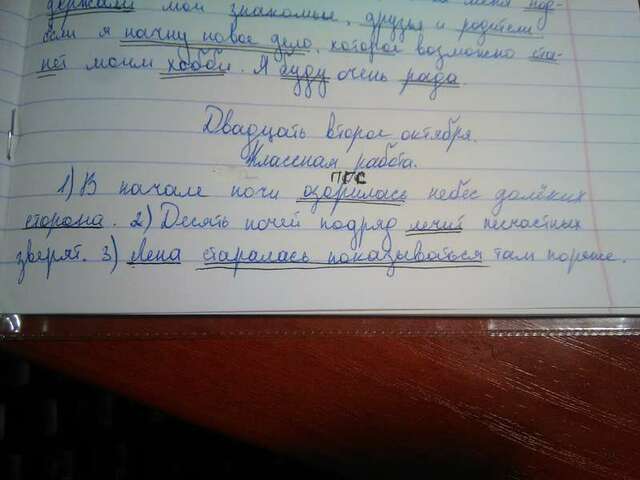 держали мои знакомые, друзья и родители
если я начну новое дело, которое возможно ста-
нет моим хобби. Я буду очень рада.
Двадцать второе октября.
Классная работа.
ПГС
1) В начале ночи озорилась небес далёких
сторона. 2) Десять ночей подряд лечит несчастных
зверят. 3) Лена старалась показываться там пореже.